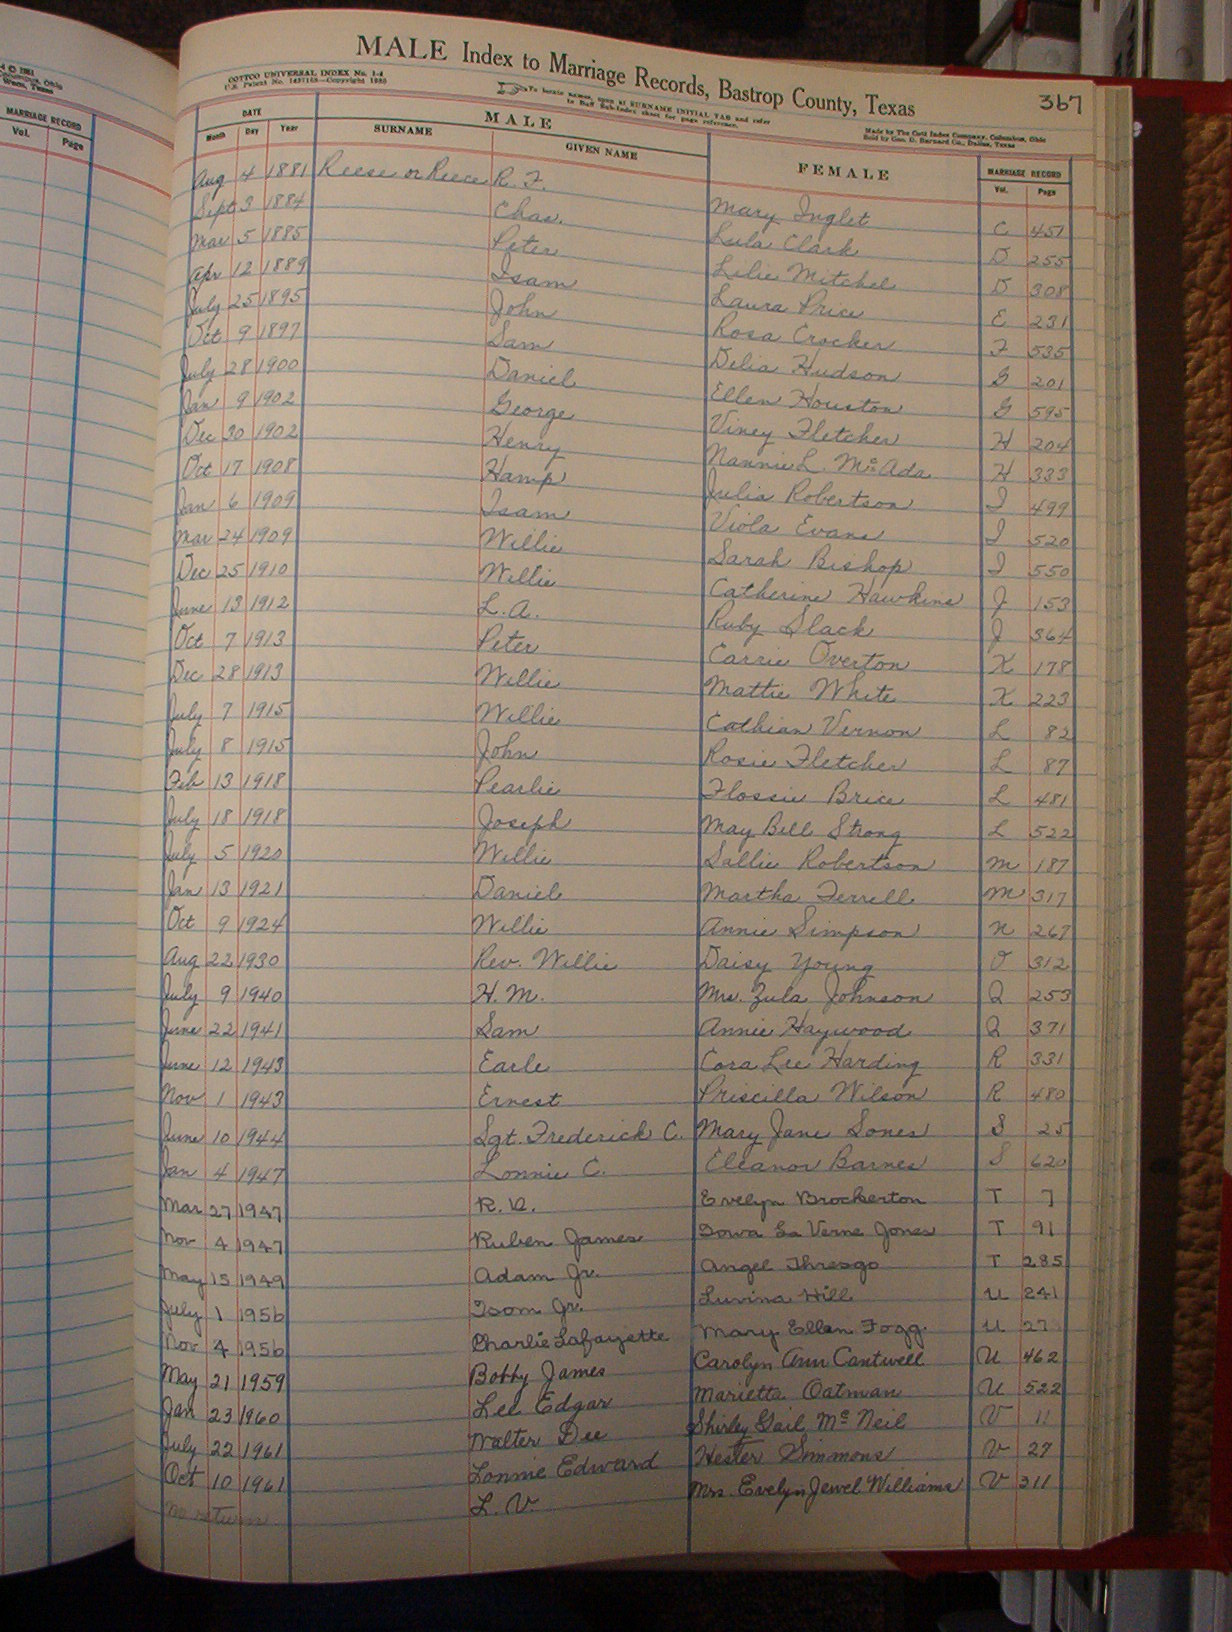 MALE Index to Marriage Records, Bastrop County, Texas 367
COTTCO UNIVERSAL INDEX No. 1-4
To locate names, open at SURNAME INITIAL TAB and refer
to Buff Sub-Index sheet for page reference.
Made by The Cott Index Company, Columbus, Ohio
Sold by Geo. D. Barnard Co., Dallas, Texas
MARRIAGE RECORD
Vol. Page
DATE MALE FEMALE MARRIAGE RECORD
Month Day Year SURNAME GIVEN NAME Vol. Page
Aug 4 1881 Reese or Reece R. F. Mary Inglet C 451
Sept 3 1884 Chas. Lula Clark D 255
Mar 5 1885 Peter Lilie Mitchel D 308
Apr 12 1889 Isam Laura Price E 231
July 25 1895 John Rosa Crocker F 535
Oct 9 1897 Sam Delia Hudson G 201
July 28 1900 Daniel Ellen Houston G 595
Jan 9 1902 George Viney Fletcher H 204
Dec 30 1902 Henry Nannie L. McAda H 333
Oct 17 1908 Hamp Julia Robertson I 499
Jan 6 1909 Isam Viola Evans I 520
Mar 24 1909 Willie Sarah Bishop I 550
Dec 25 1910 Willie Catherine Hawkins J 153
June 13 1912 L. A. Ruby Slack J 564
Oct 7 1913 Peter Carrie Overton K 178
Dec 28 1913 Willie Mattie White K 223
July 7 1915 Willie Cathian Vernon L 82
July 8 1915 John Rosie Fletcher L 87
Feb 13 1918 Pearlie Flossie Brice L 481
July 18 1918 Joseph May Bell Strong L 522
July 5 1920 Willie Sallie Robertson M 187
Jan 13 1921 Daniel Martha Ferrell M 317
Oct 9 1924 Willie Annie Simpson N 267
Aug 22 1930 Rev. Willie Daisy Young O 312
July 9 1940 H. M. Mrs. Zula Johnson Q 253
June 22 1941 Sam Annie Haywood Q 371
June 12 1943 Earle Cora Lee Harding R 331
Nov 1 1943 Ernest Priscilla Wilson R 480
June 10 1944 Sgt. Frederick C. Mary Jane Sones S 25
Jan 4 1947 Lonnie C. Eleanor Barnes S 620
Mar 27 1947 R. V. Evelyn Brockerton T 7
Nov 4 1947 Ruben James Iowa La Verne Jones T 91
May 15 1949 Adam Jr. Angel Thresgo T 285
July 1 1956 Isom Jr. Luvina Hill U 241
Nov 4 1956 Charlie Lafayette Mary Ellen Fogg U
May 21 1959 Bobby James Carolyn Ann Cantwell U 462
Jan 23 1960 Lee Edgar Marietta Oatman U 522
July 22 1961 Walter Dee Shirley Gail McNeil V 11
Oct 10 1961 Lonnie Edward Hester Simmons V 27
no return L. V. Mrs. Evelyn Jewel Williams V 311